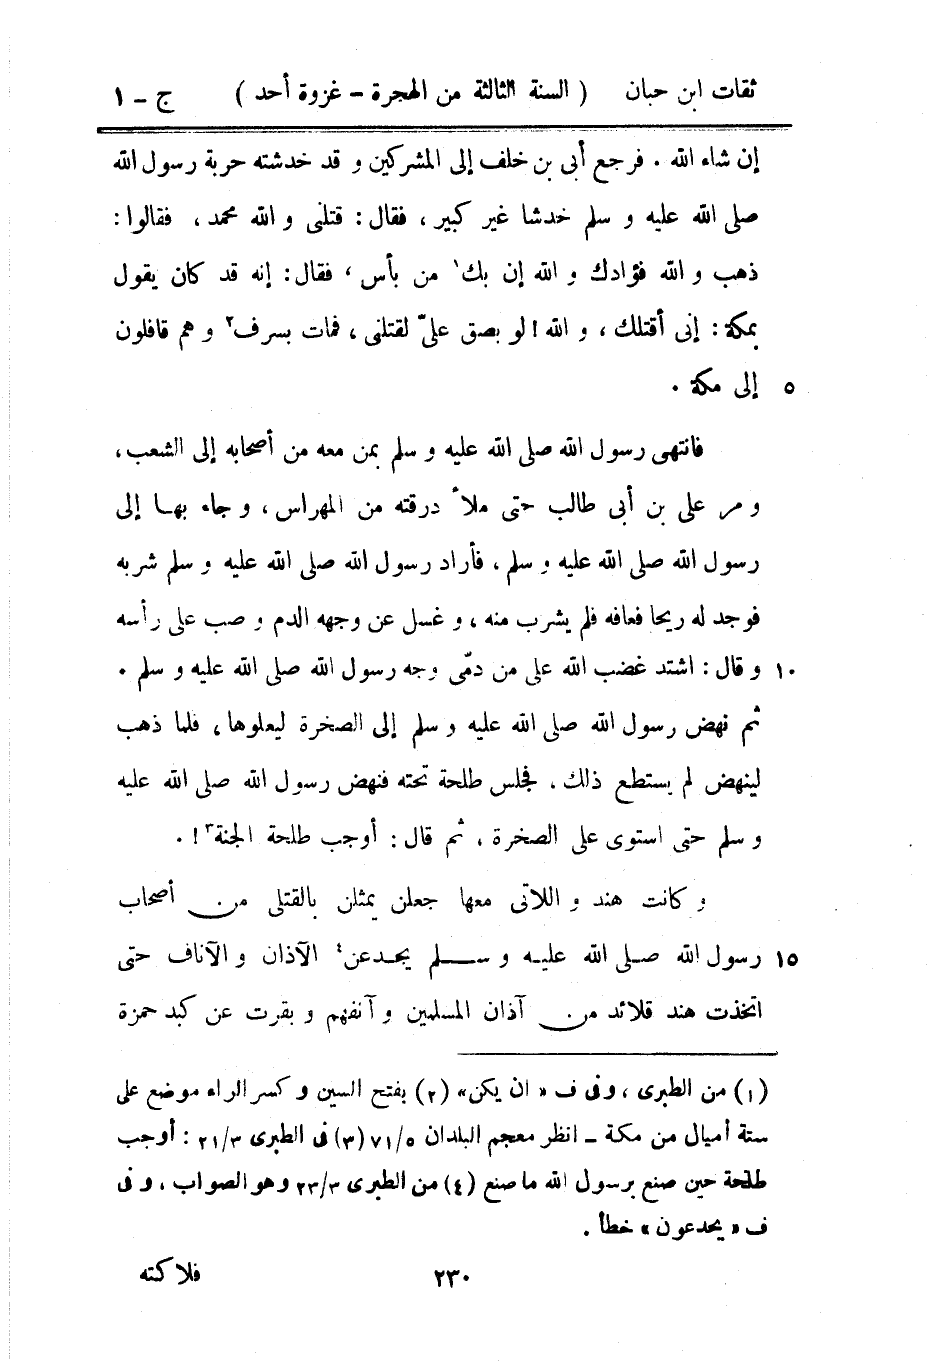 ثقات ابن حبان ( السنة الثالثة من الهجرة - غزوة أحد ) ج - ١
إن شاء الله . فرجع أبى بن خلف إلى المشركين و قد خدشته حربة رسول الله
صلى الله عليه و سلم خدشا غير كبير ، فقال : قتلنى و الله محمد ، فقالوا :
ذهب و الله فؤادك و الله إن بك١ من بأس ، فقال : إنه قد كان يقول
بمكة : إنى أقتلك ، و الله ! لو بصق علىّ لقتلنى ، فمات بسرف٢ و هم قافلون
٥ إلى مكة .
فانتهى رسول الله صلى الله عليه و سلم بمن معه من أصحابه إلى الشعب ،
و مر على بن أبى طالب حتى ملأ درقته من المهراس ، و جاء بها إلى
رسول الله صلى الله عليه و سلم ، فأراد رسول الله صلى الله عليه و سلم شربه
فوجد له ريحا فعافه فلم يشرب منه ، و غسل عن وجهه الدم و صب على رأسه
١٠ و قال : اشتد غضب الله على من دمّى وجه رسول الله صلى الله عليه و سلم .
ثم نهض رسول الله صلى الله عليه و سلم إلى الصخرة ليعلوها ، فلما ذهب
لينهض لم يستطع ذلك ، فجلس طلحة تحته فنهض رسول الله صلى الله عليه
و سلم حتى استوى على الصخرة ، ثم قال : أوجب طلحة الجنة٣ ! .
و كانت هند و اللاتى معها جعلن يمثلن بالقتلى من أصحاب
١٥ رسول الله صلى الله عليه و سلم يجدعن٤ الآذان و الآناف حتى
اتخذت هند قلائد من آذان المسلمين و آنفهم و بقرت عن كبد حمزة
(١) من الطبرى ، وفى ف « ان يكن» (٢) بفتح السين و كسر الراء موضع على
ستة أميال من مكة - انظر معجم البلدان ٧١/٥ (٣) فى الطبرى ٢١/٣ : أوجب
طلحة حين صنع برسول الله ما صنع (٤) من الطبرى ٢٣/٣ وهو الصواب ، و فى
ف « يجدعون » خطأ .
٢٣٠ فلاكته